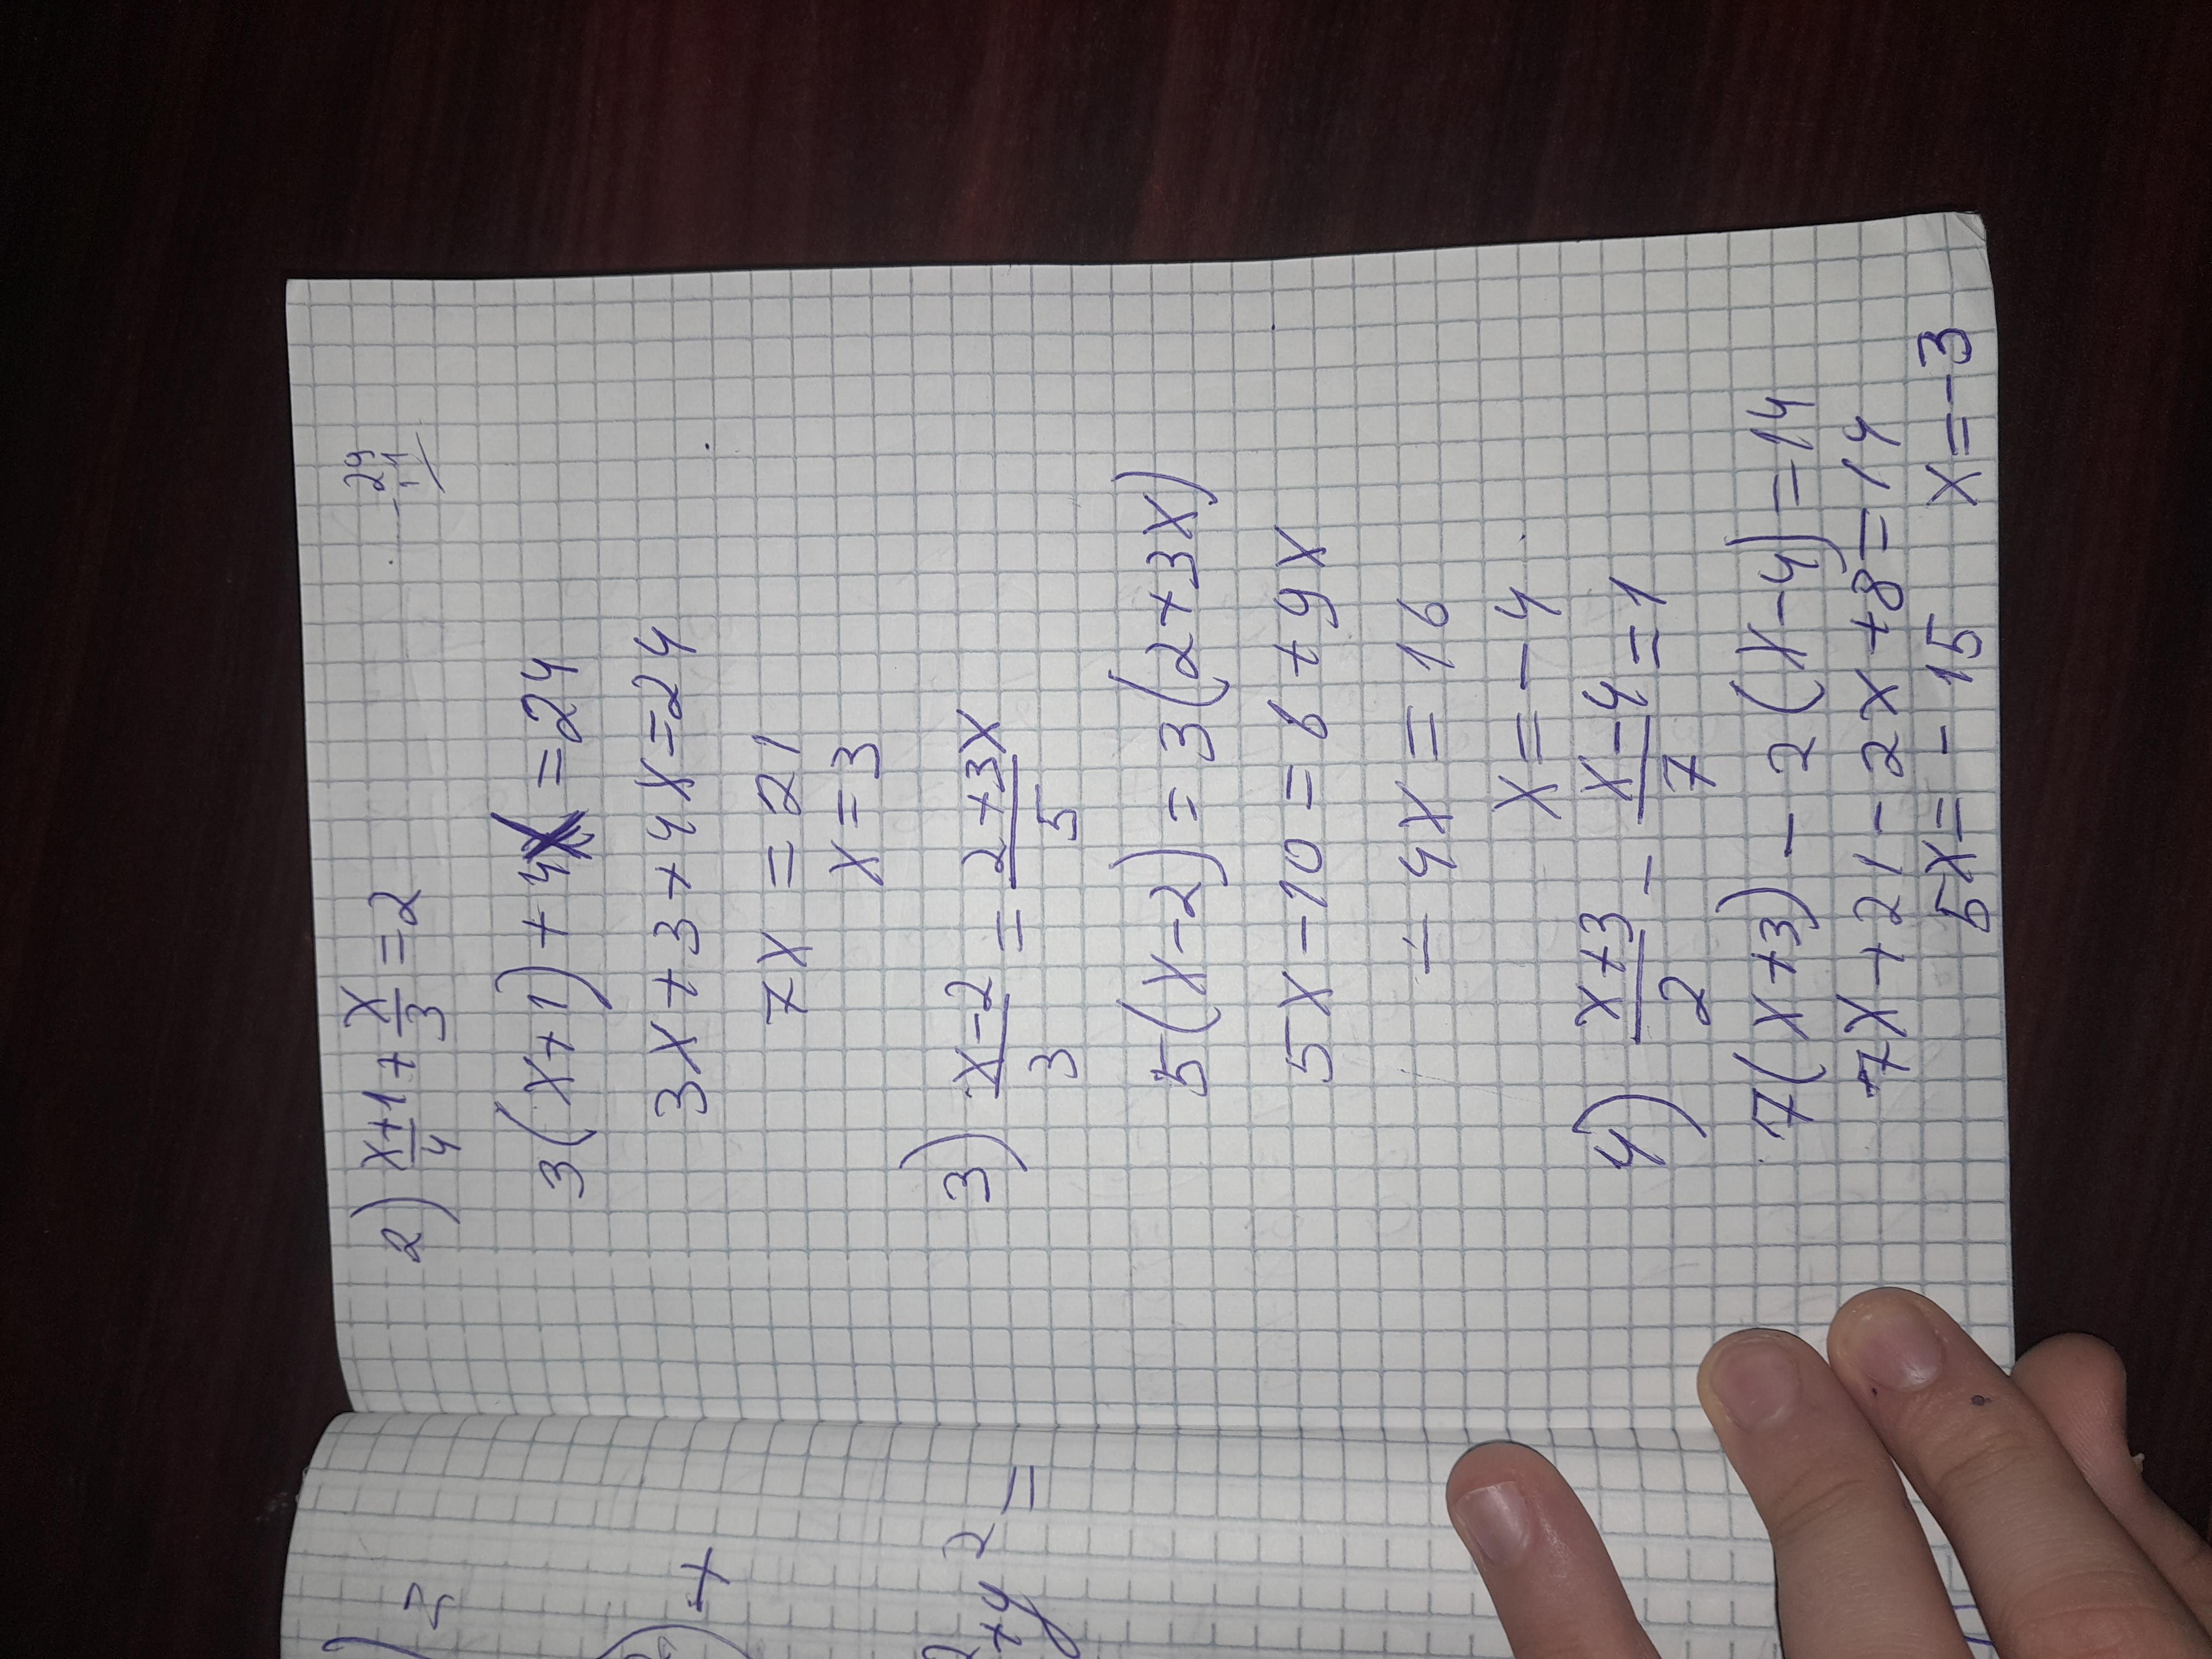 2) x+1/4 + x/3 = 2
29
11
3(x+1) + 4x = 24
3x + 3 + 4x = 24
7x = 21
x = 3
3) x-2/3 = 2+3x/5
5(x-2) = 3(2+3x)
5x - 10 = 6 + 9x
- 4x = 16
x = - 4
4) x+3/2 - x-4/7 = 1
7(x+3) - 2(x-4) = 14
7x + 21 - 2x + 8 = 14
5x = - 15 x = - 3
+
+y² =